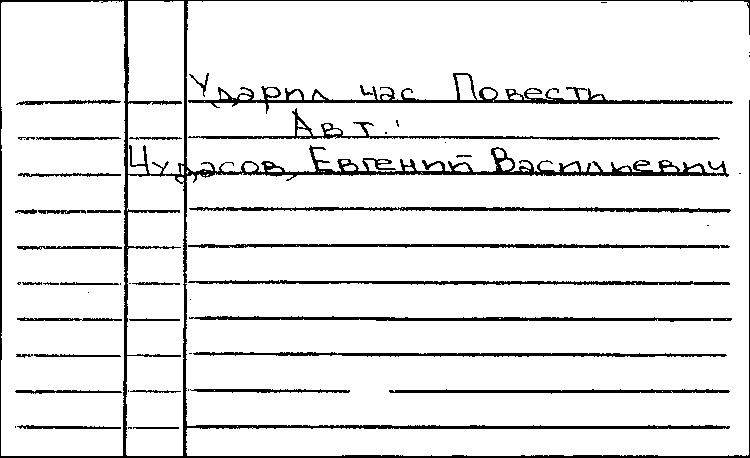 Ударил час Повесть
Авт.:
Чудасов, Евгений Васильевич